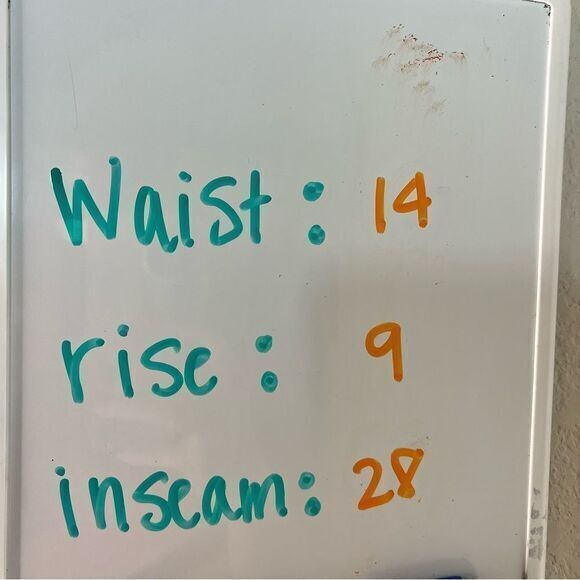 Waist: 14
rise: 9
inseam: 28